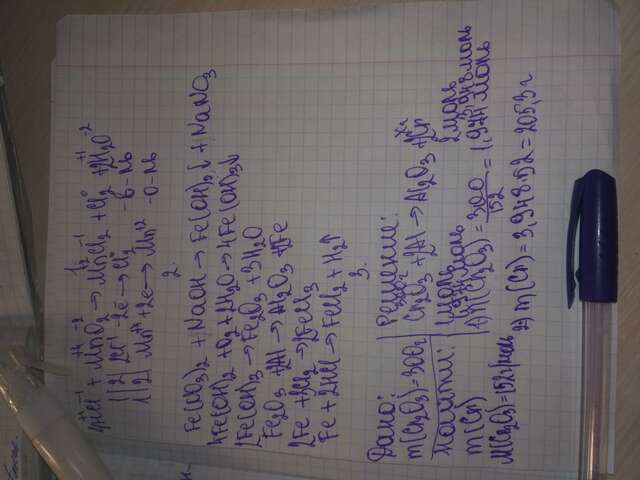 1.
4HCl + MnO₂ → MnCl₂ + Cl₂ + 2H₂O
+1 -1 +4 -2 +2 -1 0 +1 -2
1|2| 2Cl⁻ - 2e → Cl₂⁰ - в-ль
1|2| Mn⁺⁴ + 2e → Mn⁺² - о-ль
2.
Fe(NO₃)₂ + NaOH → Fe(OH)₂↓ + NaNO₃
4Fe(OH)₂ + O₂ + 2H₂O → 4Fe(OH)₃↓
2Fe(OH)₃ → Fe₂O₃ + 3H₂O
Fe₂O₃ + 2Al → Al₂O₃ + 2Fe
2Fe + 3Cl₂ → 2FeCl₃
Fe + 2HCl → FeCl₂ + H₂↑
3.
Дано:
m(Cr₂O₃) = 300г
Найти:
m(Cr)
M(Cr₂O₃) = 152г/моль
Решение:
300г Xг
Cr₂O₃ + 2Al → Al₂O₃ + 2Cr
1моль 2моль
1,974моль 3,948моль
1) n(Cr₂O₃) = 300/152 = 1,974 моль
2) m(Cr) = 3,948·52 = 205,3 г